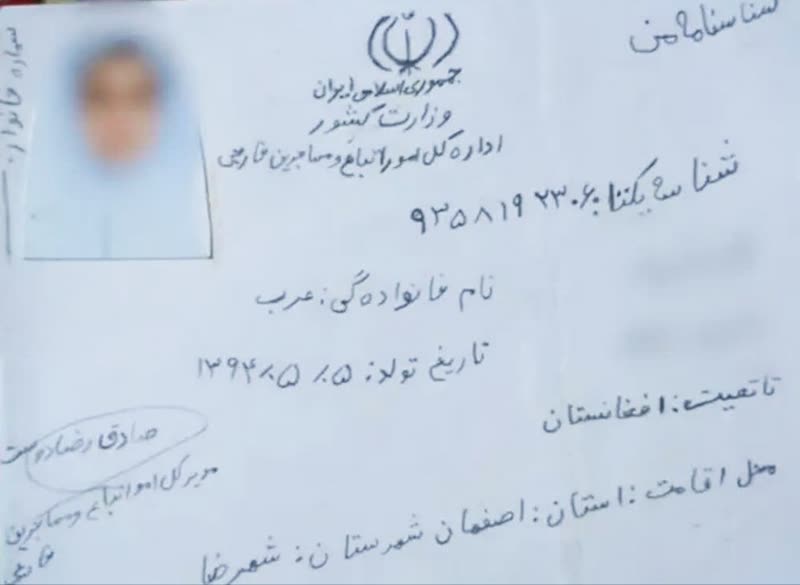 شناسنامه من
شماره خانوار:
جمهوری اسلامی ایران
وزارت کشور
اداره کل امور اتباع و مهاجرین خارجی
شناسه یکتا: ۹۳۵۸۱۹۲۳۰۶
نام خانوادگی: عرب
تاریخ تولد: ۱۳۹۴/۰۵/۰۵
تاتعیت: افغانستان
محل اقامت: استان: اصفهان شهرستان: شهرضا
صادق رضادوست
مدیر کل امور اتباع و مهاجرین
خارجی